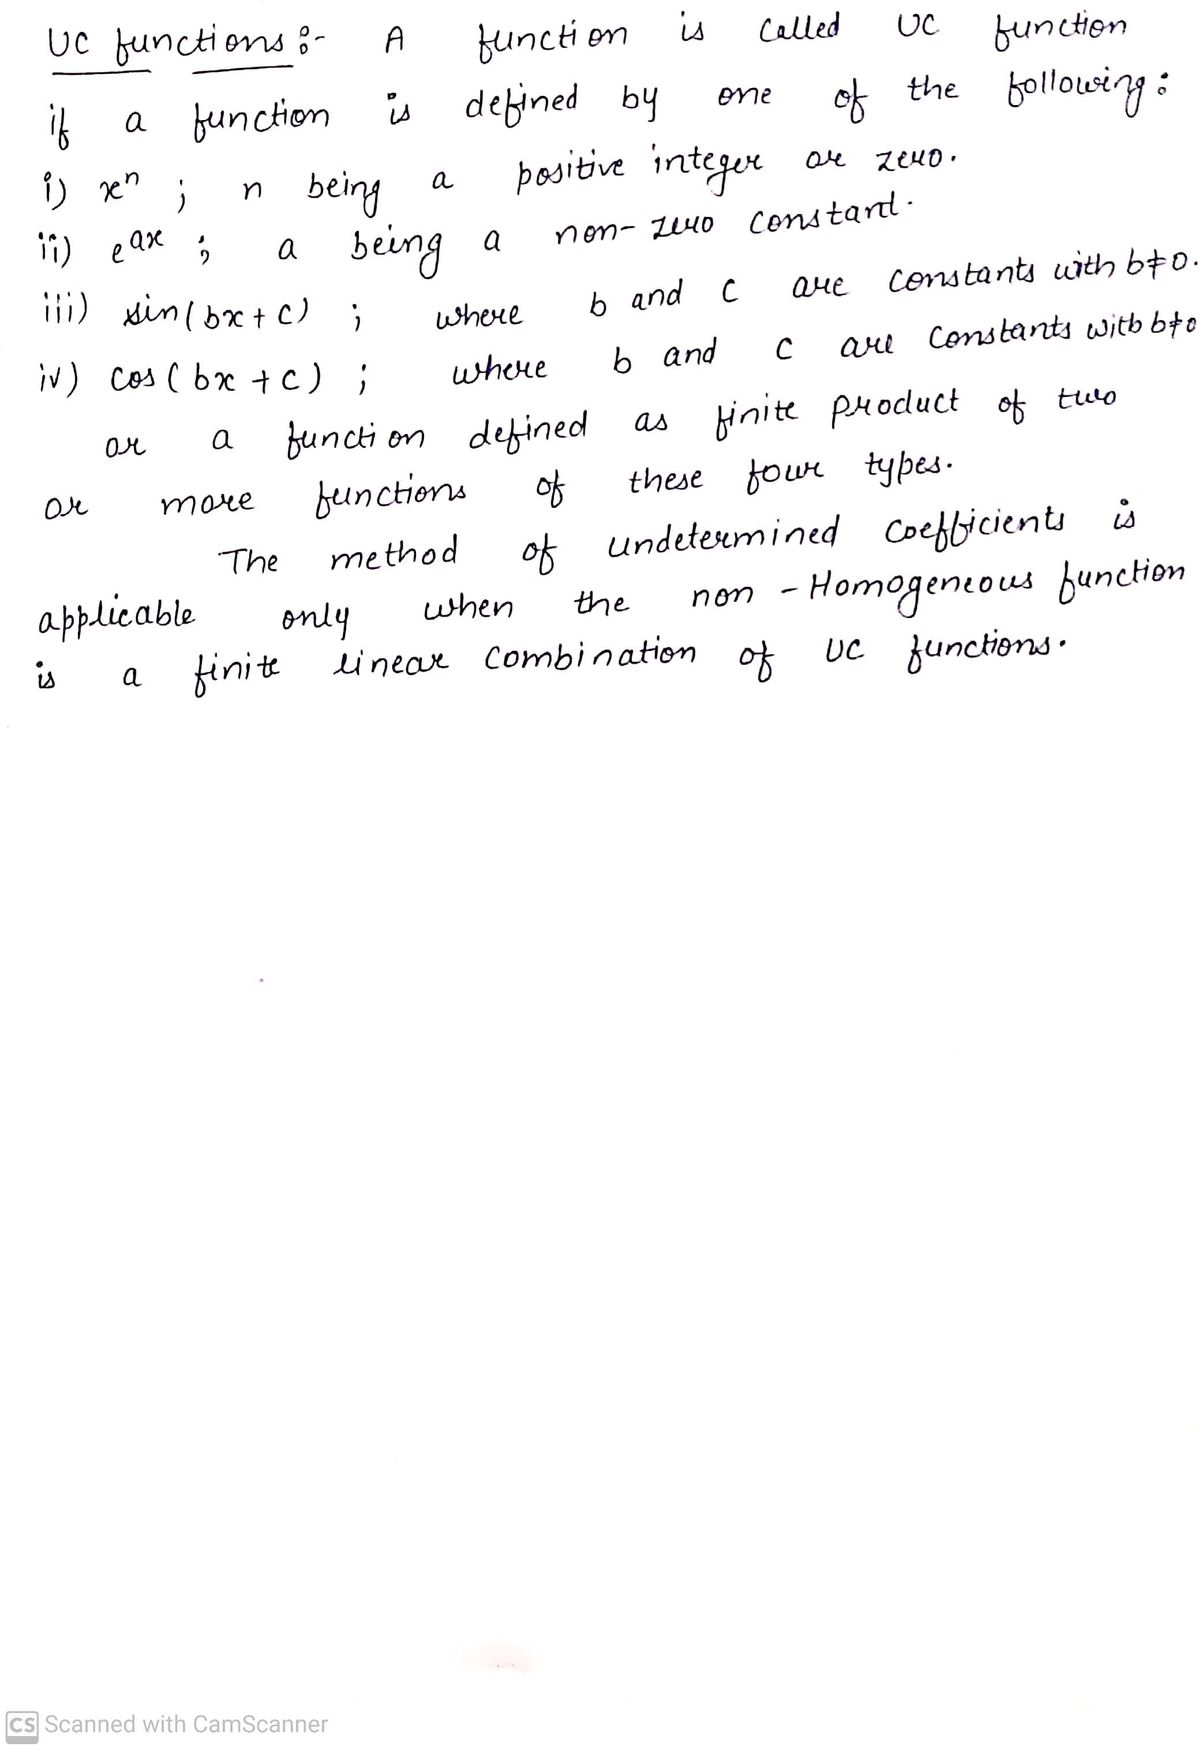 UC functions :- A function is Called UC function
if a function is defined by one of the following :
i) xⁿ ; n being a positive integer or zero.
ii) e^ax ; a being a non-zero constant.
iii) sin(bx + c) ; where b and c are constants with b≠0.
iv) cos(bx + c) ; where b and c are constants witb b≠0
or a function defined as finite product of two
or more functions of these four types.
The method of undetermined coefficients is
applicable only when the non-Homogeneous function
is a finite linear combination of UC functions.
CS Scanned with CamScanner